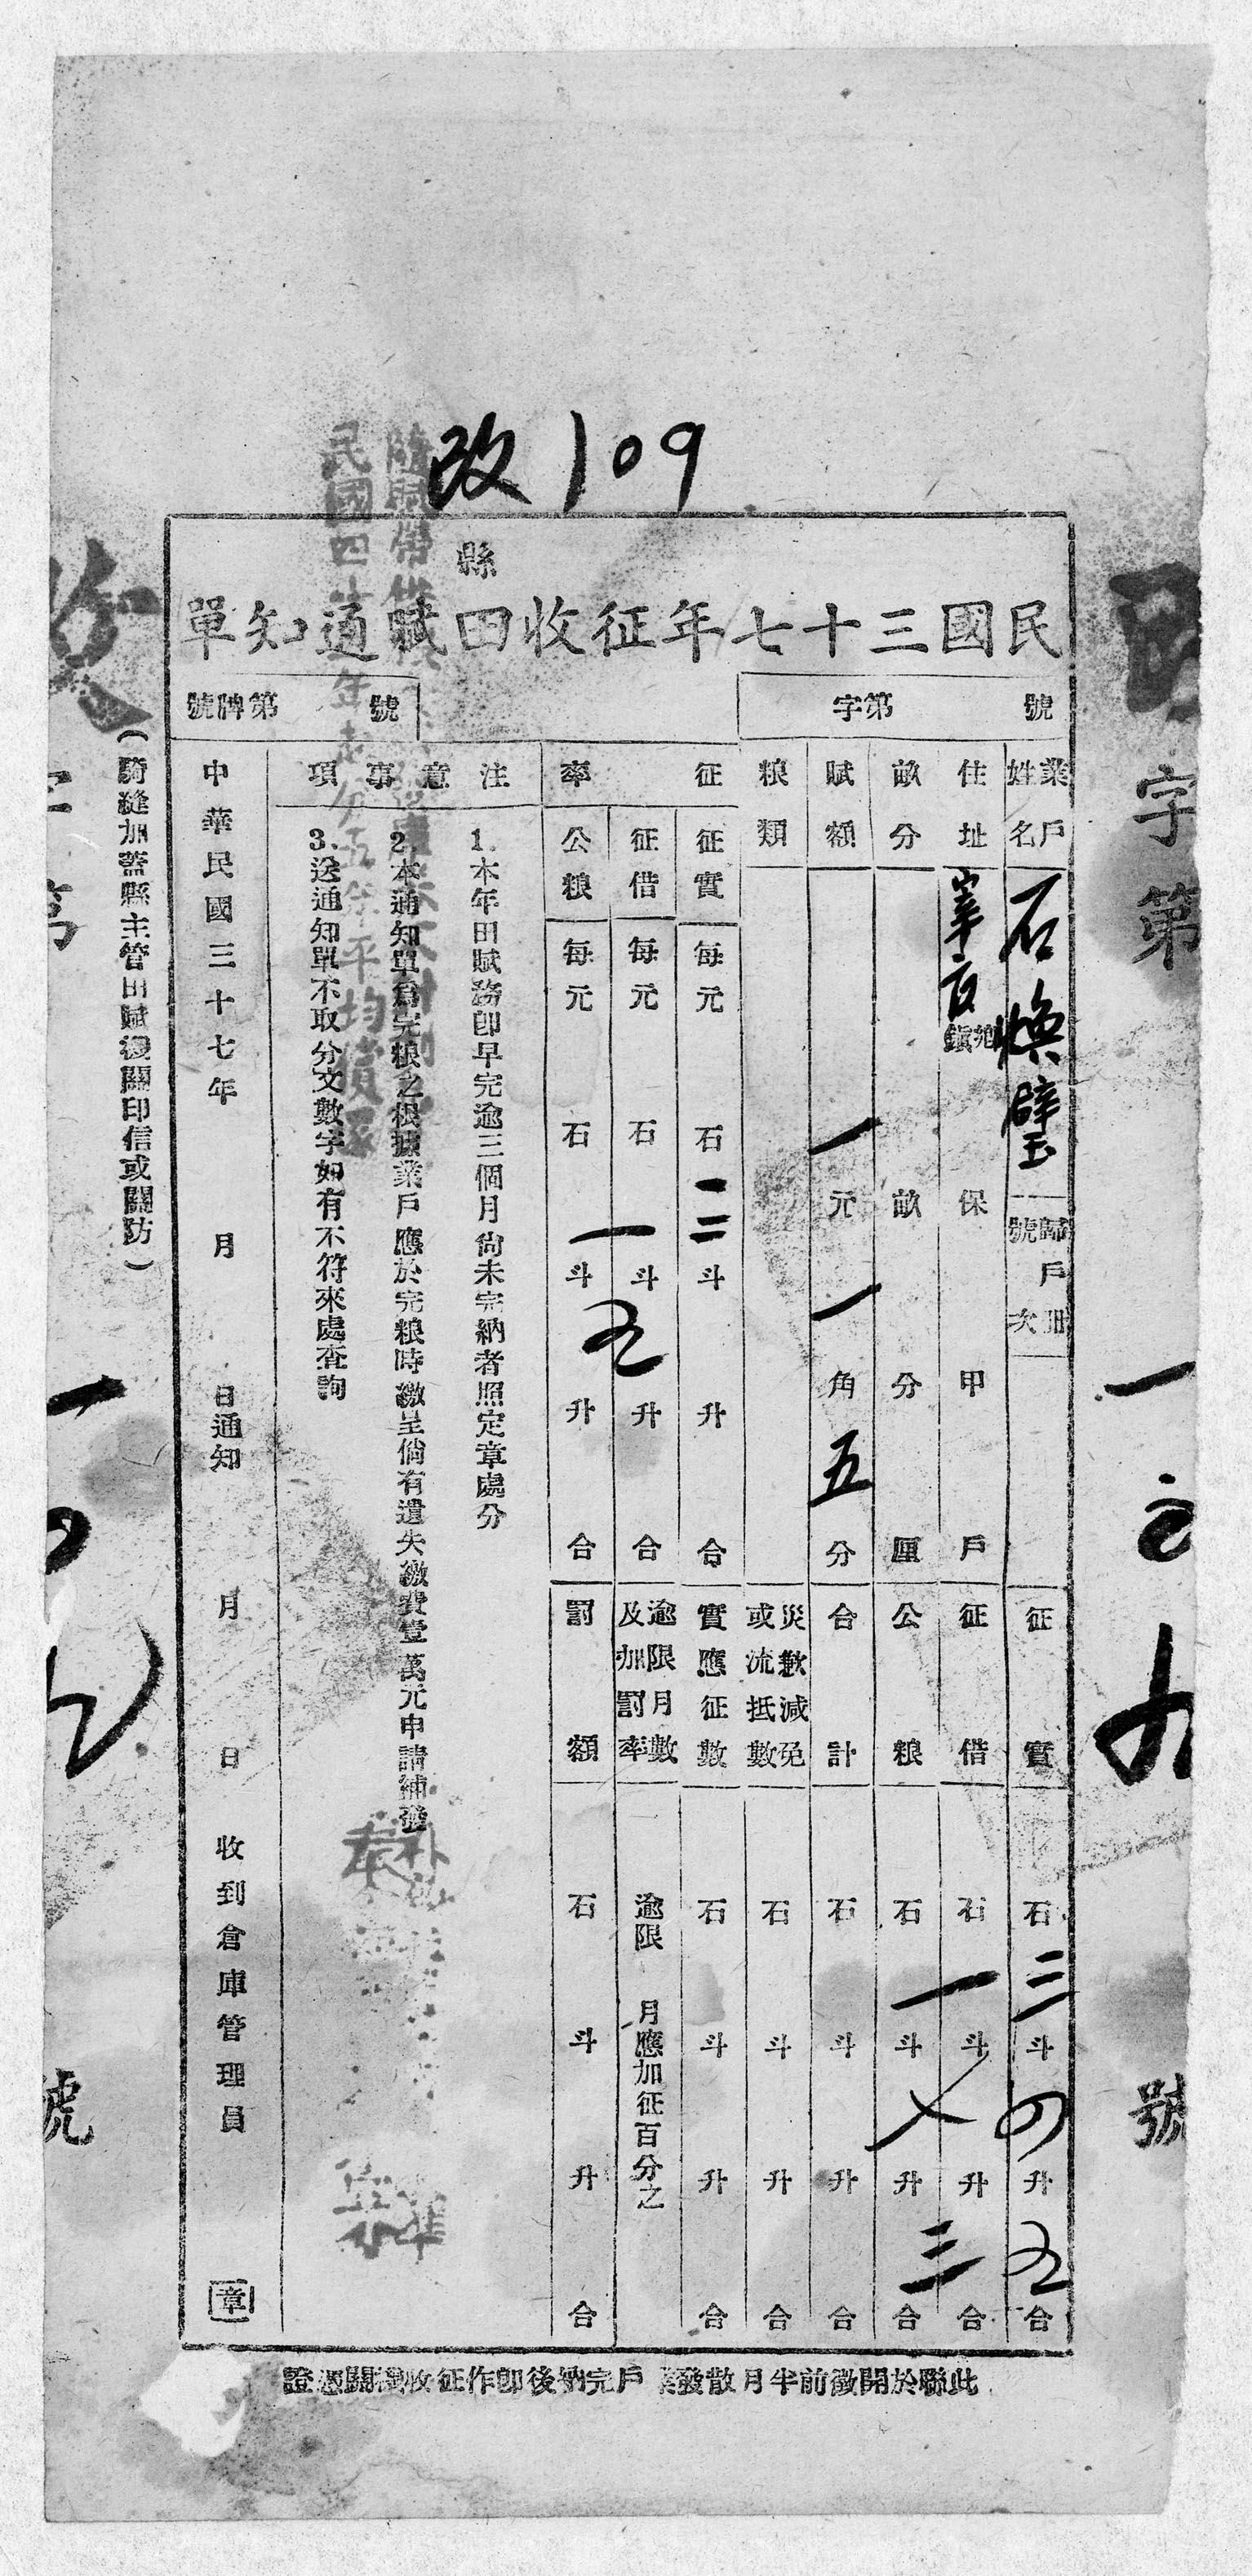 改109
縣
民國三十七年征收田賦通知單
字第 號
第 牌號 號
業戶姓名 石煥璧 歸戶冊號次
住址 鄉鎮 保 甲 戶
畝分 畝 分 厘
賦額 一元一角五分
粮類
征率
征實 每元 石三斗 升 合
征借 每元 石一斗五升 合
公粮 每元 石 斗 升 合
征實 石三斗四升五合
征借 石一斗 升三合
公粮 石 斗 升 合
合計 石 斗 升 合
災歉減免或流抵數 石 斗 升 合
實應征數 石 斗 升 合
逾限月數及加罰率 逾限 月應加征百分之
罰額 石 斗 升 合
注意事項
1.本年田賦務卽早完逾三個月尙未完納者照定章處分
2.本通知單爲完粮之根據業戶應於完粮時繳呈倘有遺失繳費壹萬元申請補發
3.送通知單不取分文數字如有不符來處查詢
中華民國三十七年 月 日通知 月 日收到倉庫管理員 章
(騎縫加蓋縣主管田賦機關印信或關防)
此聯於開徵前半月散發業戶完納後卽作征收機關憑證
字第 號
民國四十